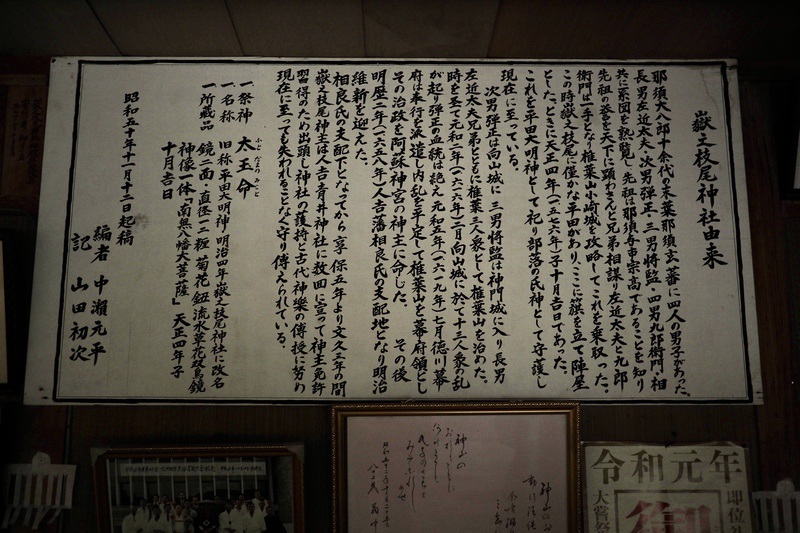 嶽之枝尾神社由来
那須大八郎十余代の末葉那須玄蕃に四人の男子があった。
長男左近太夫・次男弾正・三男将監・四男九郎衛門・相
共に系図を熟覧し、先祖は那須与市宗高であることを知り
先祖の姿を天下に顕わさんと兄弟相謀り左近太夫と九郎
衛門は一手となり椎葉山小崎城を攻略してこれを乗取った。
この時嶽之枝尾に僅かな平田があり、ここに籏を立て陣屋
とした。ときに天正四年(一五七六年)子十月吉日であった。
これを平田大明神として祀り部落の氏神として守護し
現在に至っている。
次男弾正は向山城に三男将監は神門城に入り長男
左近太夫兄弟ともに椎葉三人衆として椎葉山を治めた。
時を至て元和二年(一六一六年)二月向山城に於て十三人衆の乱
が起り弾正の血統は絶え元和五年(一六一九年)七月徳川幕
府は奉行を派遣し内乱を平定して椎葉山を幕府領とし
その治政を阿蘇神宮の神主に命じた。 その後
明歴二年(一六五八年)人吉藩相良氏の支配地となり明治
維新を迎えた。
相良氏の支配下となってから享保五年より文久三年の間
嶽之枝尾神主は人吉青井神社に数回に亘って神主免許
習得のため出頭し神社の護持と古代神樂の傳授に努め
現在に至っても失われることなく守り傳えられている。
一、祭神 太玉命
ふと だまの みこと
一、名称 旧称平田大明神 明治四年嶽之枝尾神社に改名
一、所蔵品 鏡二面・直径一二糎 菊花 鈕 流水草花双鳥鏡
神像一体「南無八幡大菩薩」天正四年子
十月吉日
昭和五十年十一月十二日起稿
編者 中瀬元平
記 山田初次
神山の
令和元年
即位礼
大嘗祭